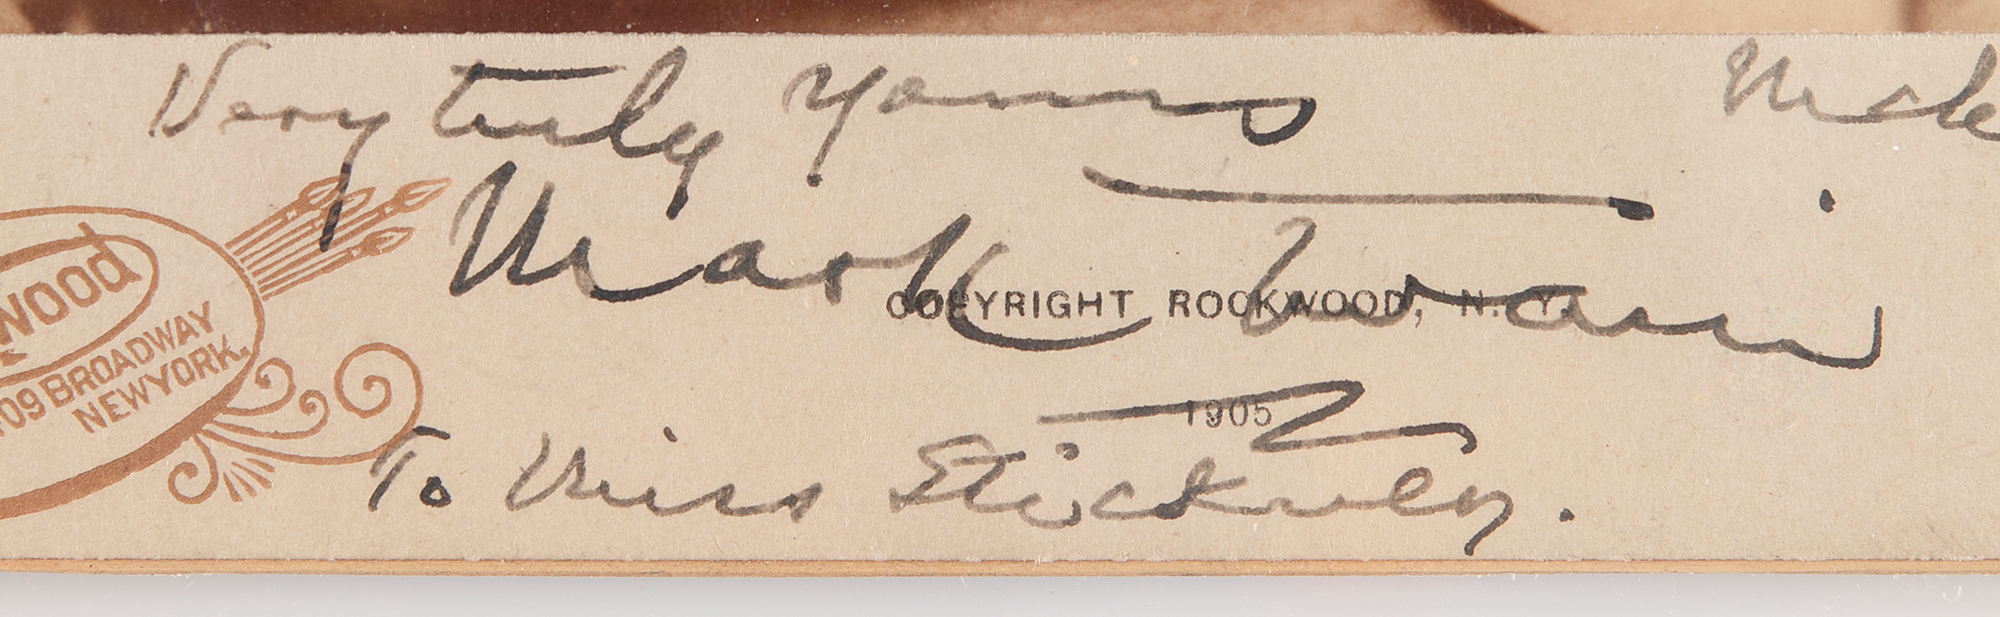 Very truly yours
Mark Twain
COPYRIGHT ROCKWOOD, N.Y.
1905
To Miss Stickney.
WOOD
09 BROADWAY
NEW YORK.